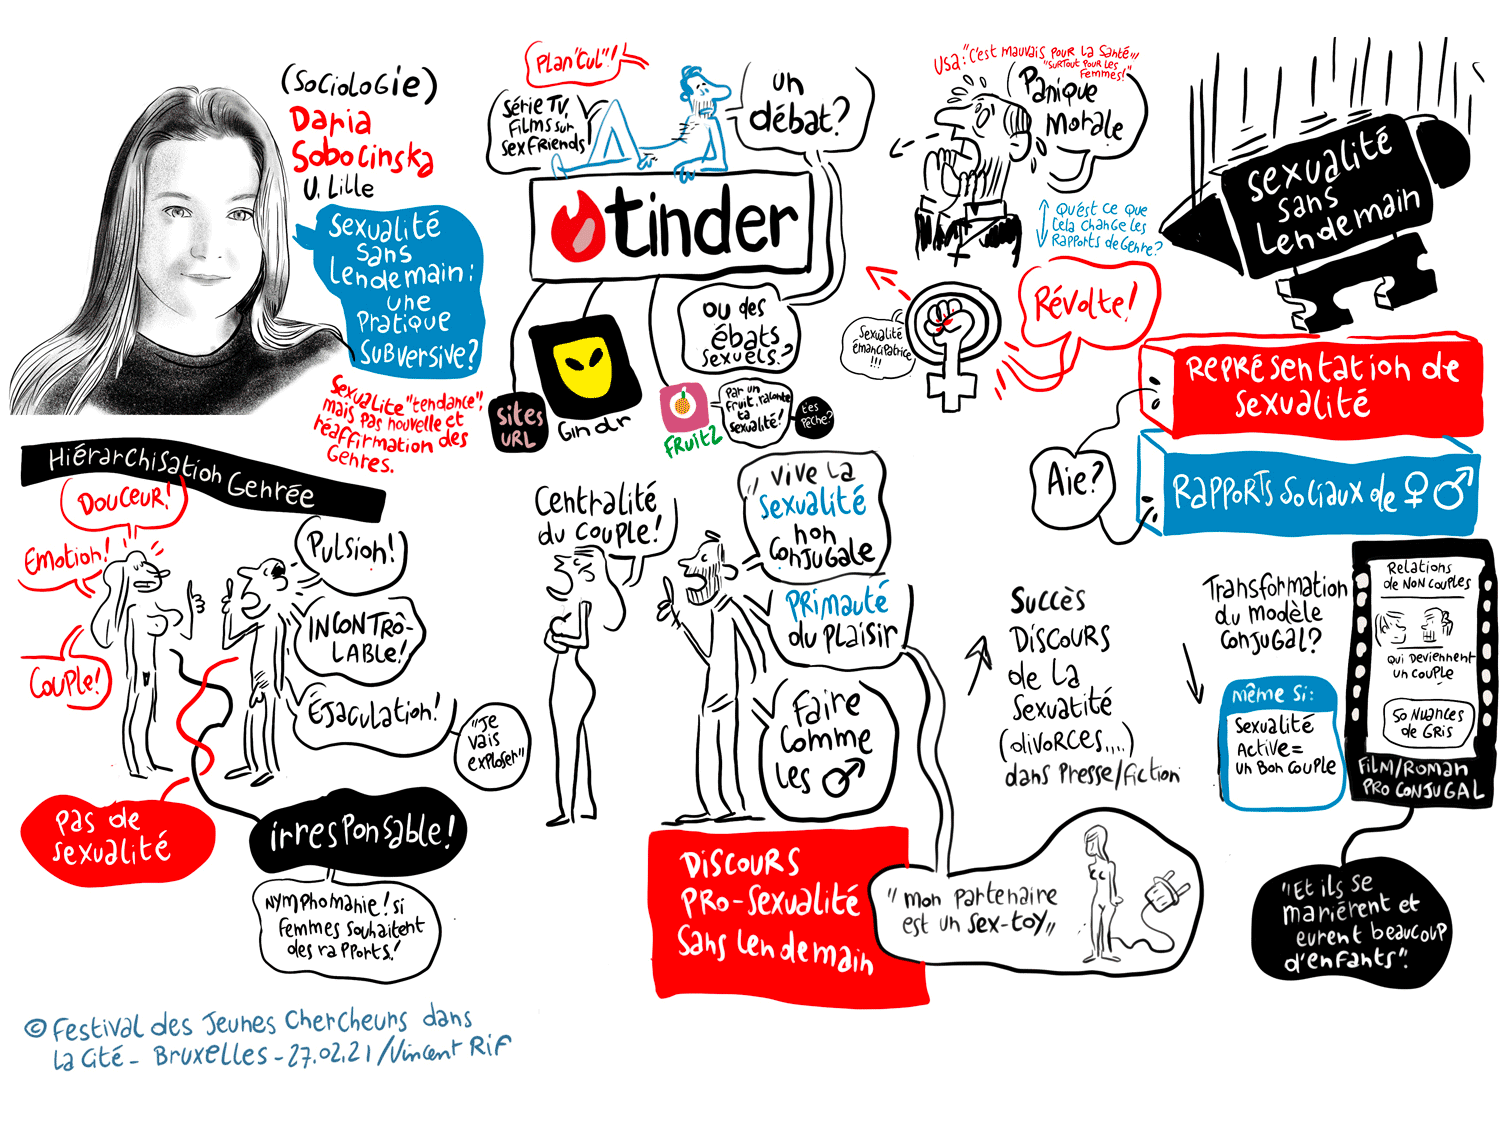 (Sociologie)
Daria
Sobocinska
U. Lille
Sexualité
sans
lendemain :
une
pratique
subversive ?
Sexualité "tendance",
mais pas nouvelle et
réaffirmation des
genres.
Plan "cul" !
Série TV,
films sur
sexfriends !
un
débat ?
tinder
ou des
ébats
sexuels ?
sites
URL
Grindr
Fruitz
Par un
fruit, raconte
ta
sexualité !
t'es
pêche ?
USA : "C'est mauvais pour la santé,,,
"surtout pour les
femmes !"
Panique
morale
Qu'est ce que
cela change les
rapports de genre ?
Sexualité
émancipatrice
!!!
Révolte !
Sexualité
sans
lendemain
Représentation de
sexualité
Aie ?
Rapports sociaux de ♀ ♂
Hiérarchisation Genrée
Douceur !
Emotion !
Couple !
Pulsion !
INCONTRÔ-
LABLE !
Éjaculation !
"Je
vais
exploser"
Pas de
sexualité
irresponsable !
Nymphomanie ! si
femmes souhaitent
des rapports !
Centralité
du couple !
"Vive la
sexualité
non
conjugale
Primauté
du plaisir
Faire
comme
les ♂
Discours
pro-sexualité
sans lendemain
"mon partenaire
est un sex-toy"
Succès
Discours
de la
Sexuatité
(divorces....)
dans presse/fiction
Transformation
du modèle
conjugal ?
même si :
Sexualité
Active =
un Bon couple
Relations
de NON couples
qui deviennent
un couple
50 Nuances
de Gris
Film/Roman
pro conjugal
"Et ils se
marièrent et
eurent beaucoup
d'enfants".
© Festival des Jeunes Chercheurs dans
la Cité - Bruxelles - 27.02.21 / Vincent Rif